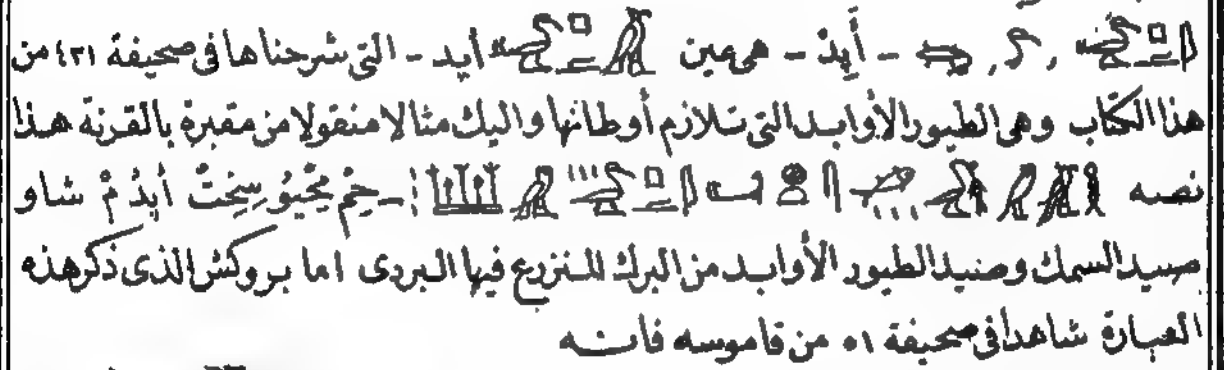 - أَبِدْ - هى عين أيد - التى شرحناها فى صحيفة ٤٣١ من
هذا الكتاب وهى الطيور الأوابد التى تلازم أوطانها واليك مثالا منقولا من مقبرة بالقرنة هذا
نصه - حِمْ مِحْيُو سِخِتْ أَبِدُ مْ شاو
صيد السمك وصنيد الطيور الأوابد من البرك المنزرع فيها البردى اما بروكش الذى ذكر هذه
العبارة شاهدا فى صحيفة ٥١ من قاموسه فانه